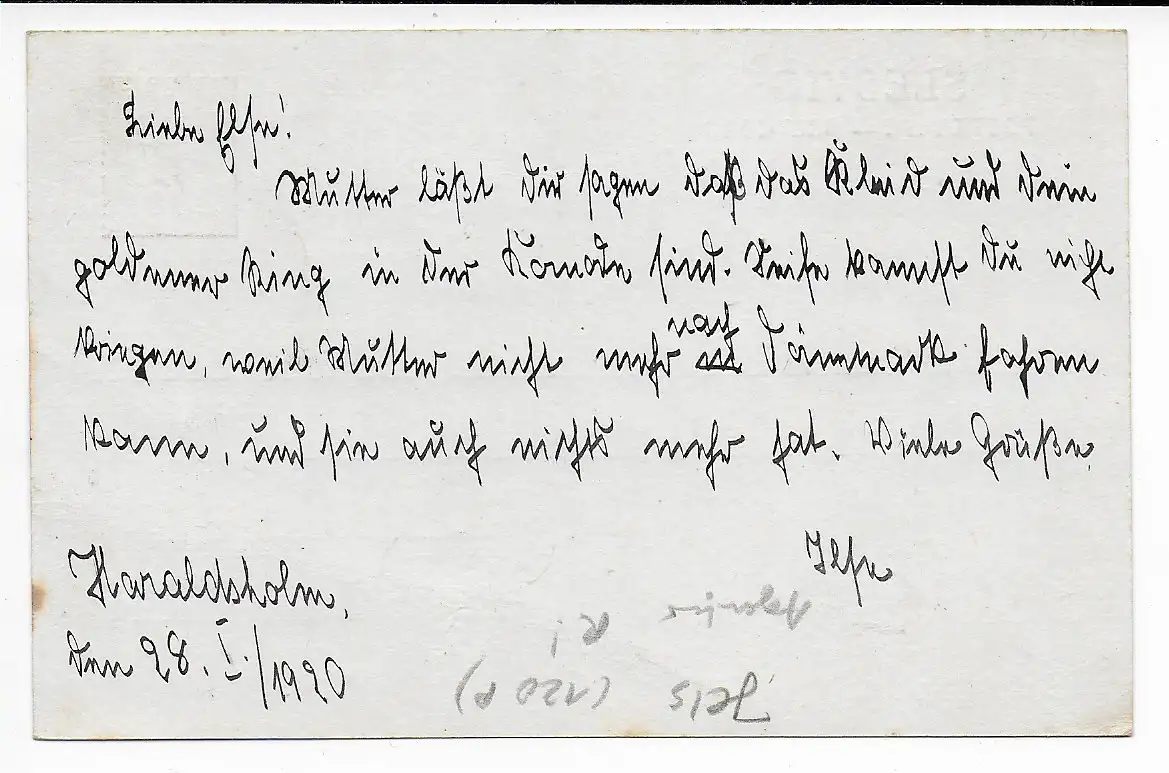 Liebe Else!
Mutter läßt dir sagen daß das Kleid und dein
goldener Ring in der Komode sind. Seife kannst du nicht
kriegen, weil Mutter nicht mehr nach Dänemark fahren
kann, und sie auch nichts mehr hat. Viele Grüße.
Ilse
Haraldsholm,
den 28. I./1920
Jels (120 )